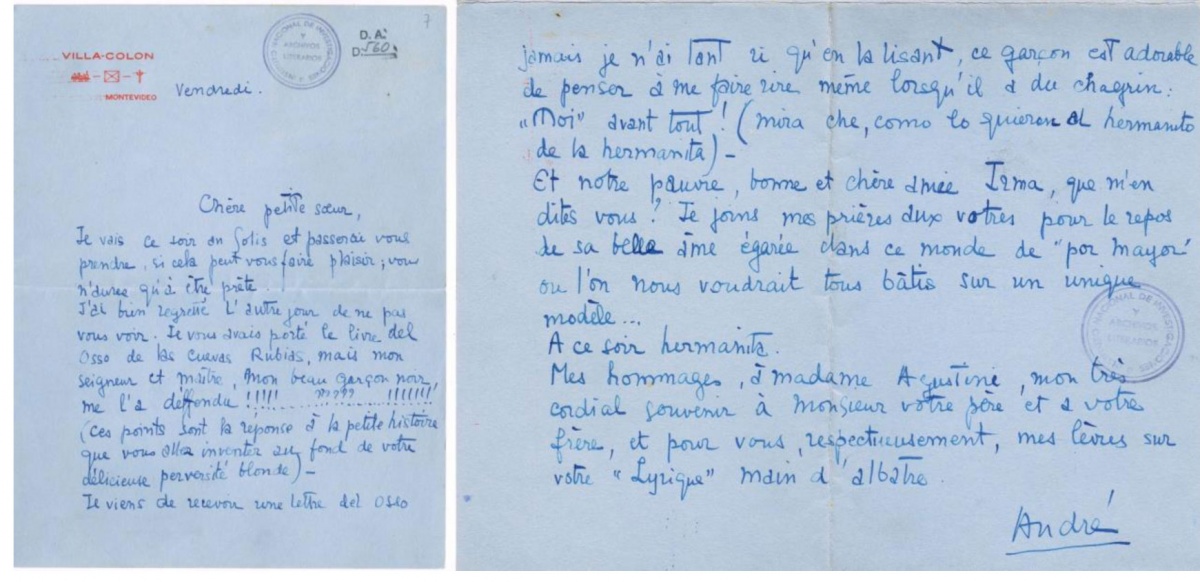 7
D. A.
D. 560.
INSTITUTO NACIONAL DE INVESTIGACIONES
Y
ARCHIVOS
LITERARIOS
VILLA-COLON
MONTEVIDEO
Vendredi.
Chère petite sœur,
Je vais ce soir au Solis et passerai vous
prendre, si cela peut vous faire plaisir; vous
n'aurez qu'à être prête.
J'ai bien regretté l'autre jour de ne pas
vous voir. Je vous avais porté le livre del
Osso de las Cuevas Rubias, mais mon
seigneur et maître, Mon beau garçon noir,
me l'a deffendu !!!!! ..... ????? ..... !!!!!!!
(ces points sont la réponse à la petite histoire
que vous allez inventer au fond de votre
délicieuse perversité blonde) -
Je viens de recevoir une lettre del Osso
jamais je n'ai tant ri qu'en la lisant, ce garçon est adorable
de penser à me faire rire même lorsqu'il a du chagrin:
"Moi" avant tout! (mira che, como lo quieren al hermanito
de la hermanita) -
Et notre pauvre, bonne et chère amie Irma, que m'en
dites vous? Je joins mes prières aux votres pour le repos
de sa belle âme égarée dans ce monde de "por mayor"
ou l'on nous voudrait tous bâtis sur un unique
modèle...
NACIONAL DE INVESTIGACIONES
Y
ARCHIVOS
LITERARIOS
A ce soir hermanita.
Mes hommages, à madame Agustine, mon très
cordial souvenir à Monsieur votre père et a votre
frère, et pour vous, respectueusement, mes lèvres sur
votre "Lyrique" main d'albâtre.
André